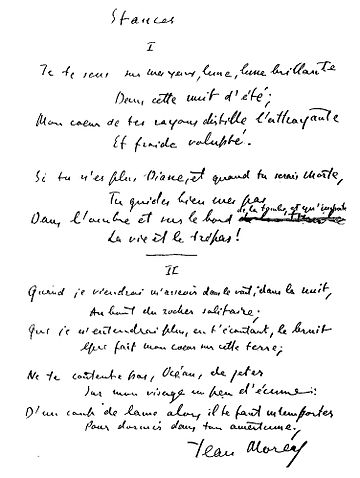 Stances
I
Je te sens sur mes yeux, lune, lune brillante
Dans cette nuit d'été;
Mon coeur de tes rayons distille l'attrayante
Et froide volupté.
Si tu n'es plus Diane, et quand tu serais morte,
Tu guides bien mes pas
de la tombe, et qu'importe
Dans l'ombre et sur le bord
La vie et le trépas!
II
Quand je viendrai m'asseoir dans le vent, dans la nuit,
Au bout du rocher solitaire,
Que je n'entendrai plus, en t'écoutant, le bruit
Que fait mon coeur sur cette terre,
Ne te contente pas, Océan, de jeter
Sur mon visage un peu d'écume:
D'un coup de lame alors il te faut m'emporter
Pour dormir dans ton amertume,
Jean Moréas